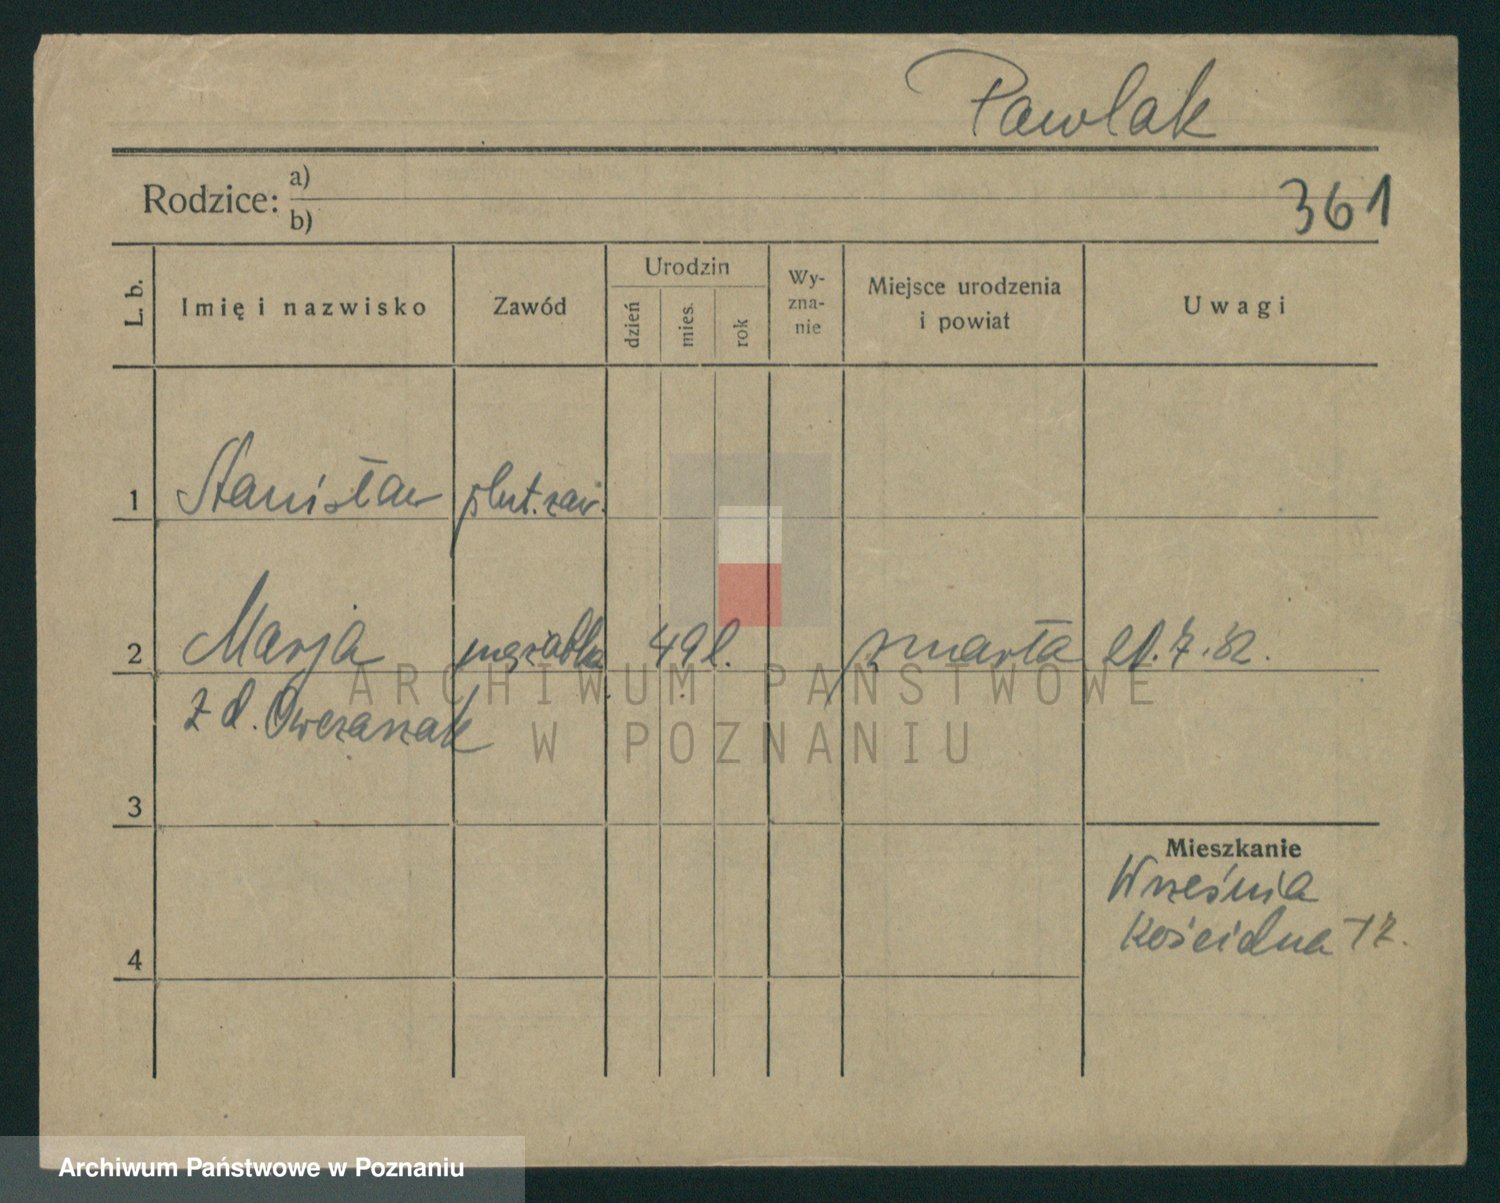 Pawlak
Rodzice: a)
b)
361
L. b.
Imię i nazwisko
Zawód
Urodzin
dzień
mies.
rok
Wy-
zna-
nie
Miejsce urodzenia
i powiat
Uwagi
1 Stanisław plut. zaw.
2 Marja 49 l. zmarła 21.7.32.
z d. Owczarzak
3
4
Mieszkanie
Września
Kościelna 17.
ARCHIWUM PAŃSTWOWE
W POZNANIU
Archiwum Państwowe w Poznaniu